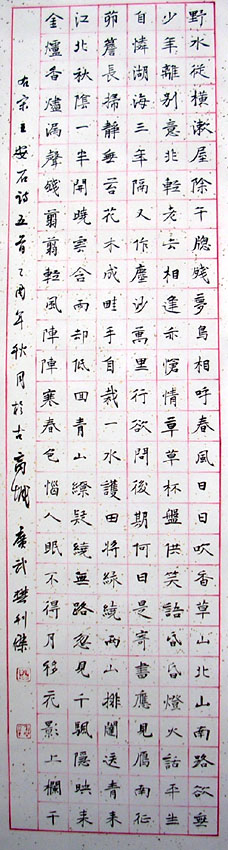 野水從橫漱屋除午牕殘夢鳥相呼春風日日吹香草山北山南路欲無
少年離別意非輕老去相逢亦愴情草草杯盤供笑語昏昏燈火話平生
自憐湖海三年隔又作塵沙萬里行欲問後期何日是寄書應見雁南征
茆簷長掃靜無苔花木成畦手自栽一水護田將綠繞兩山排闥送青來
江北秋陰一半開曉雲含雨却低回青山繚疑繞無路忽見千颿隱映來
金爐香燼漏聲殘翦翦輕風陣陣寒春色惱人眠不得月移花影上欄干
右宋王安石詩五首乙酉年秋月於古高城 廣武